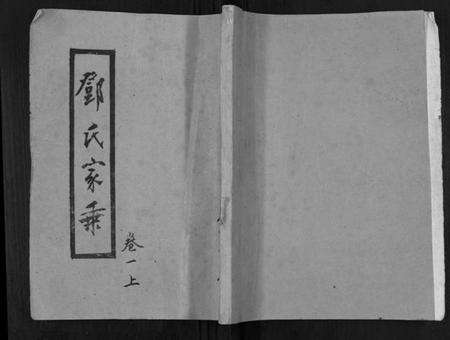 鄧氏家乘
卷一上